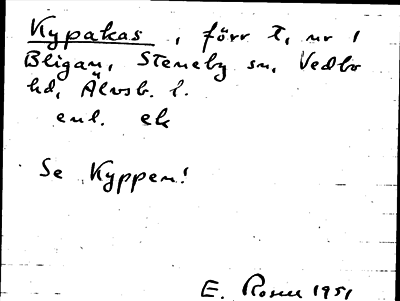 Kypakas, förr t, nr 1
Bligan, Steneby sn, Vedbo
hd, Älvsb. l.
enl. ek
Se Kyppen!
E. Rosen 1951